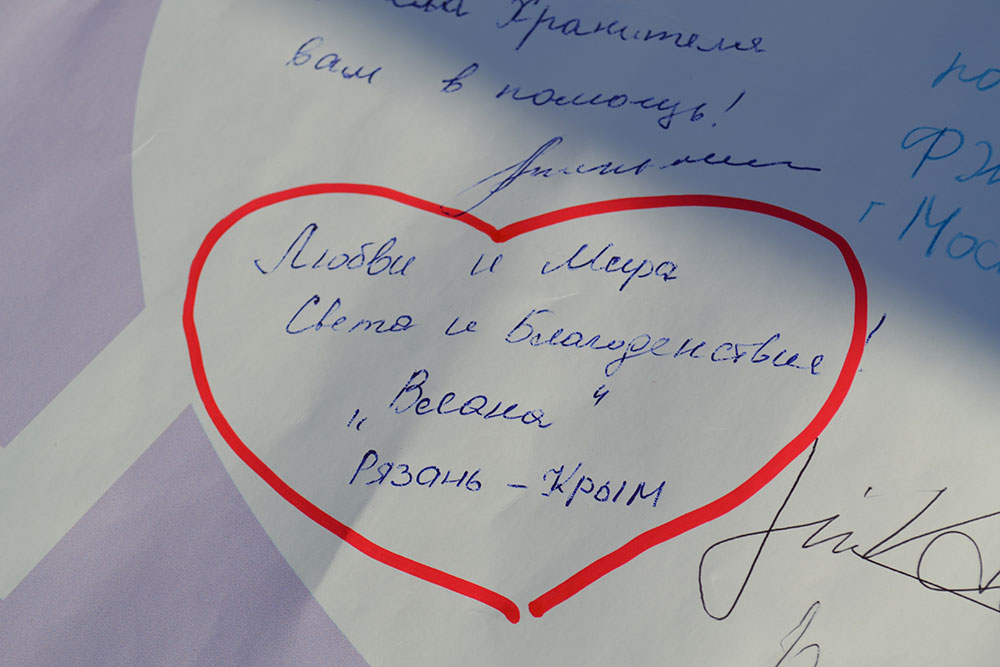 Хранителя
вам в помощь!
Любви и Мира
Света и Благоденствия!
"Весана"
Рязань - Крым
ФЭ
г Мос